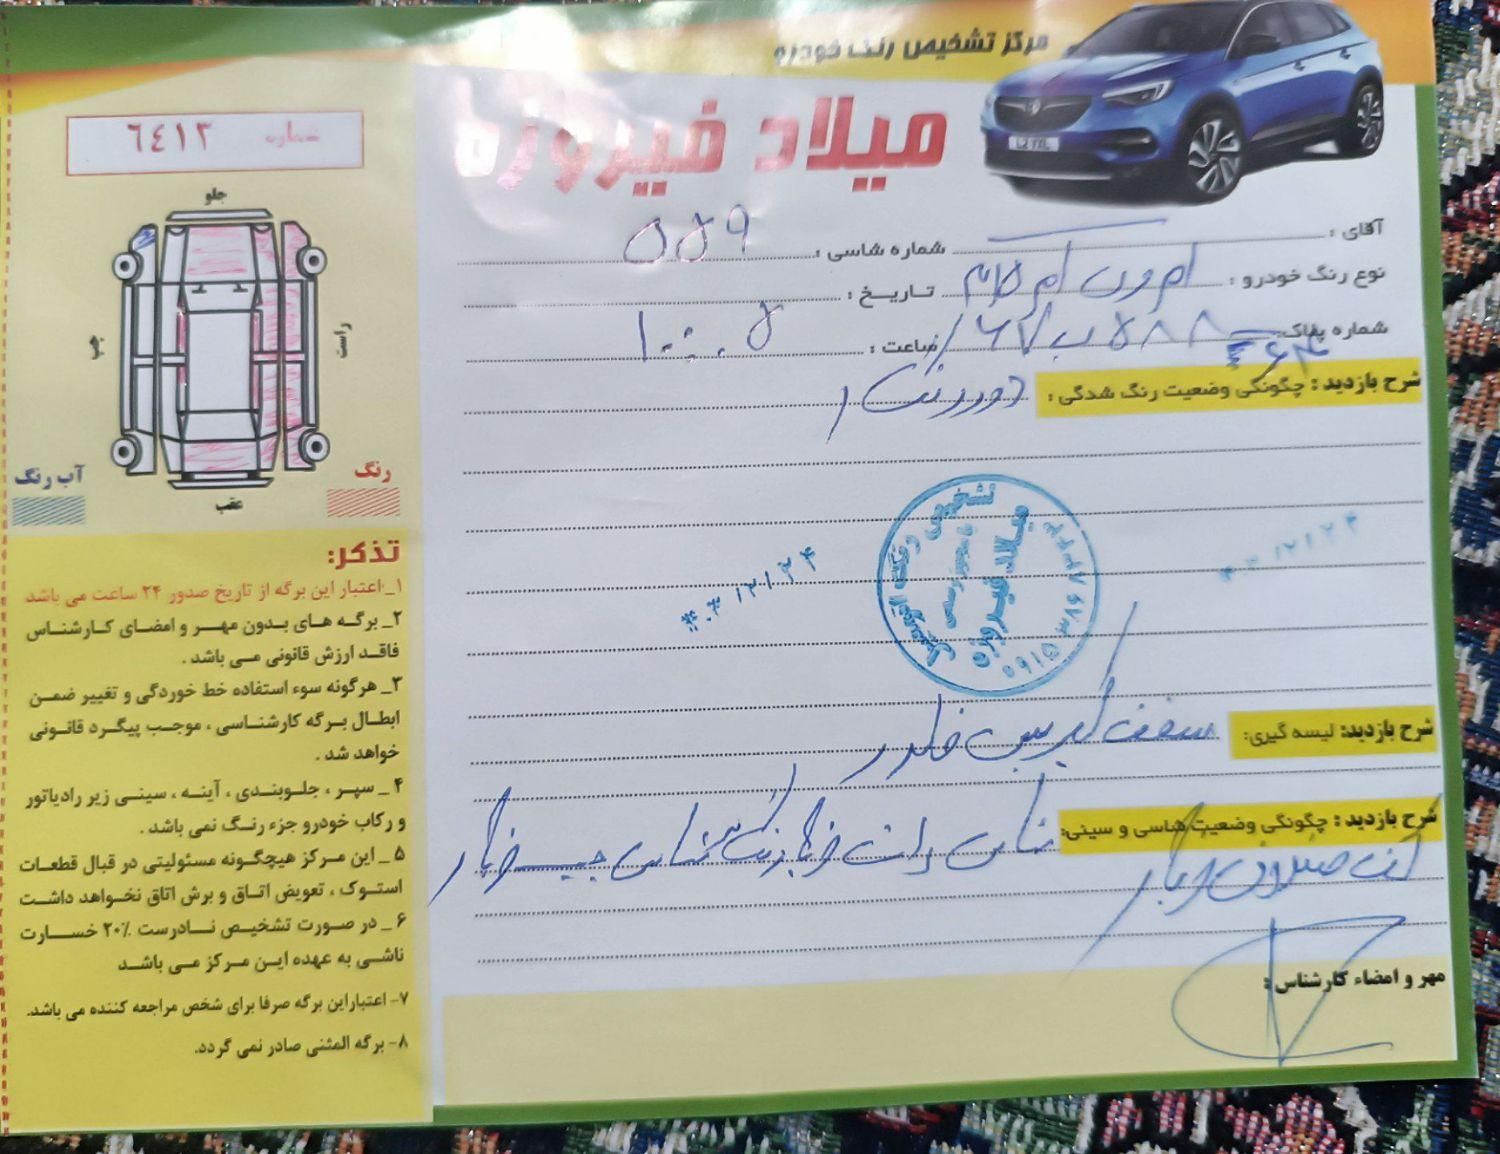 مرکز تشخیص رنگ خودرو
میلاد فیروزه
شماره ٦٤١٢
آقای :
شماره شاسی : ۵۵۹
نوع رنگ خودرو :
تاریخ :
شماره پلاک:
ساعت : ۱۰:۰۵
شرح بازدید : چگونگی وضعیت رنگ شدگی : دور رنگ
جلو
چپ
راست
عقب
رنگ
آب رنگ
تشخیص رنگ اتومبیل
میلاد فیروزه
۴۰۳/۱۲/۲۴
۴۰۳/۱۲/۲۴
شرح بازدید: لیسه گیری: سقف
شرح بازدید : چگونگی وضعیت شاسی و سینی: شاسی راست
مهر و امضاء کارشناس :
تذکر:
۱_اعتبار این برگه از تاریخ صدور ۲۴ ساعت می باشد
۲_ برگه های بدون مهر و امضای کارشناس
فاقد ارزش قانونی می باشد .
۳_ هرگونه سوء استفاده خط خوردگی و تغییر ضمن
ابطال برگه کارشناسی ، موجب پیگرد قانونی
خواهد شد .
۴ _ سپر ، جلوبندی ، آینه ، سینی زیر رادیاتور
و رکاب خودرو جزء رنگ نمی باشد .
۵ _ این مرکز هیچگونه مسئولیتی در قبال قطعات
استوک ، تعویض اتاق و برش اتاق نخواهد داشت
۶ _ در صورت تشخیص نادرست ۲۰٪ خسارت
ناشی به عهده این مرکز می باشد
۷- اعتباراین برگه صرفا برای شخص مراجعه کننده می باشد.
۸- برگه المثنی صادر نمی گردد.